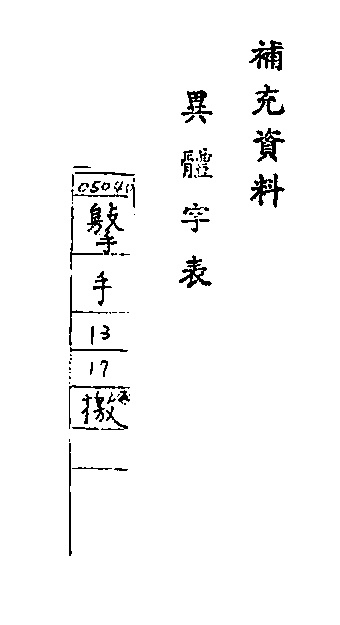 補充資料
異體字表
手
13
17
撽